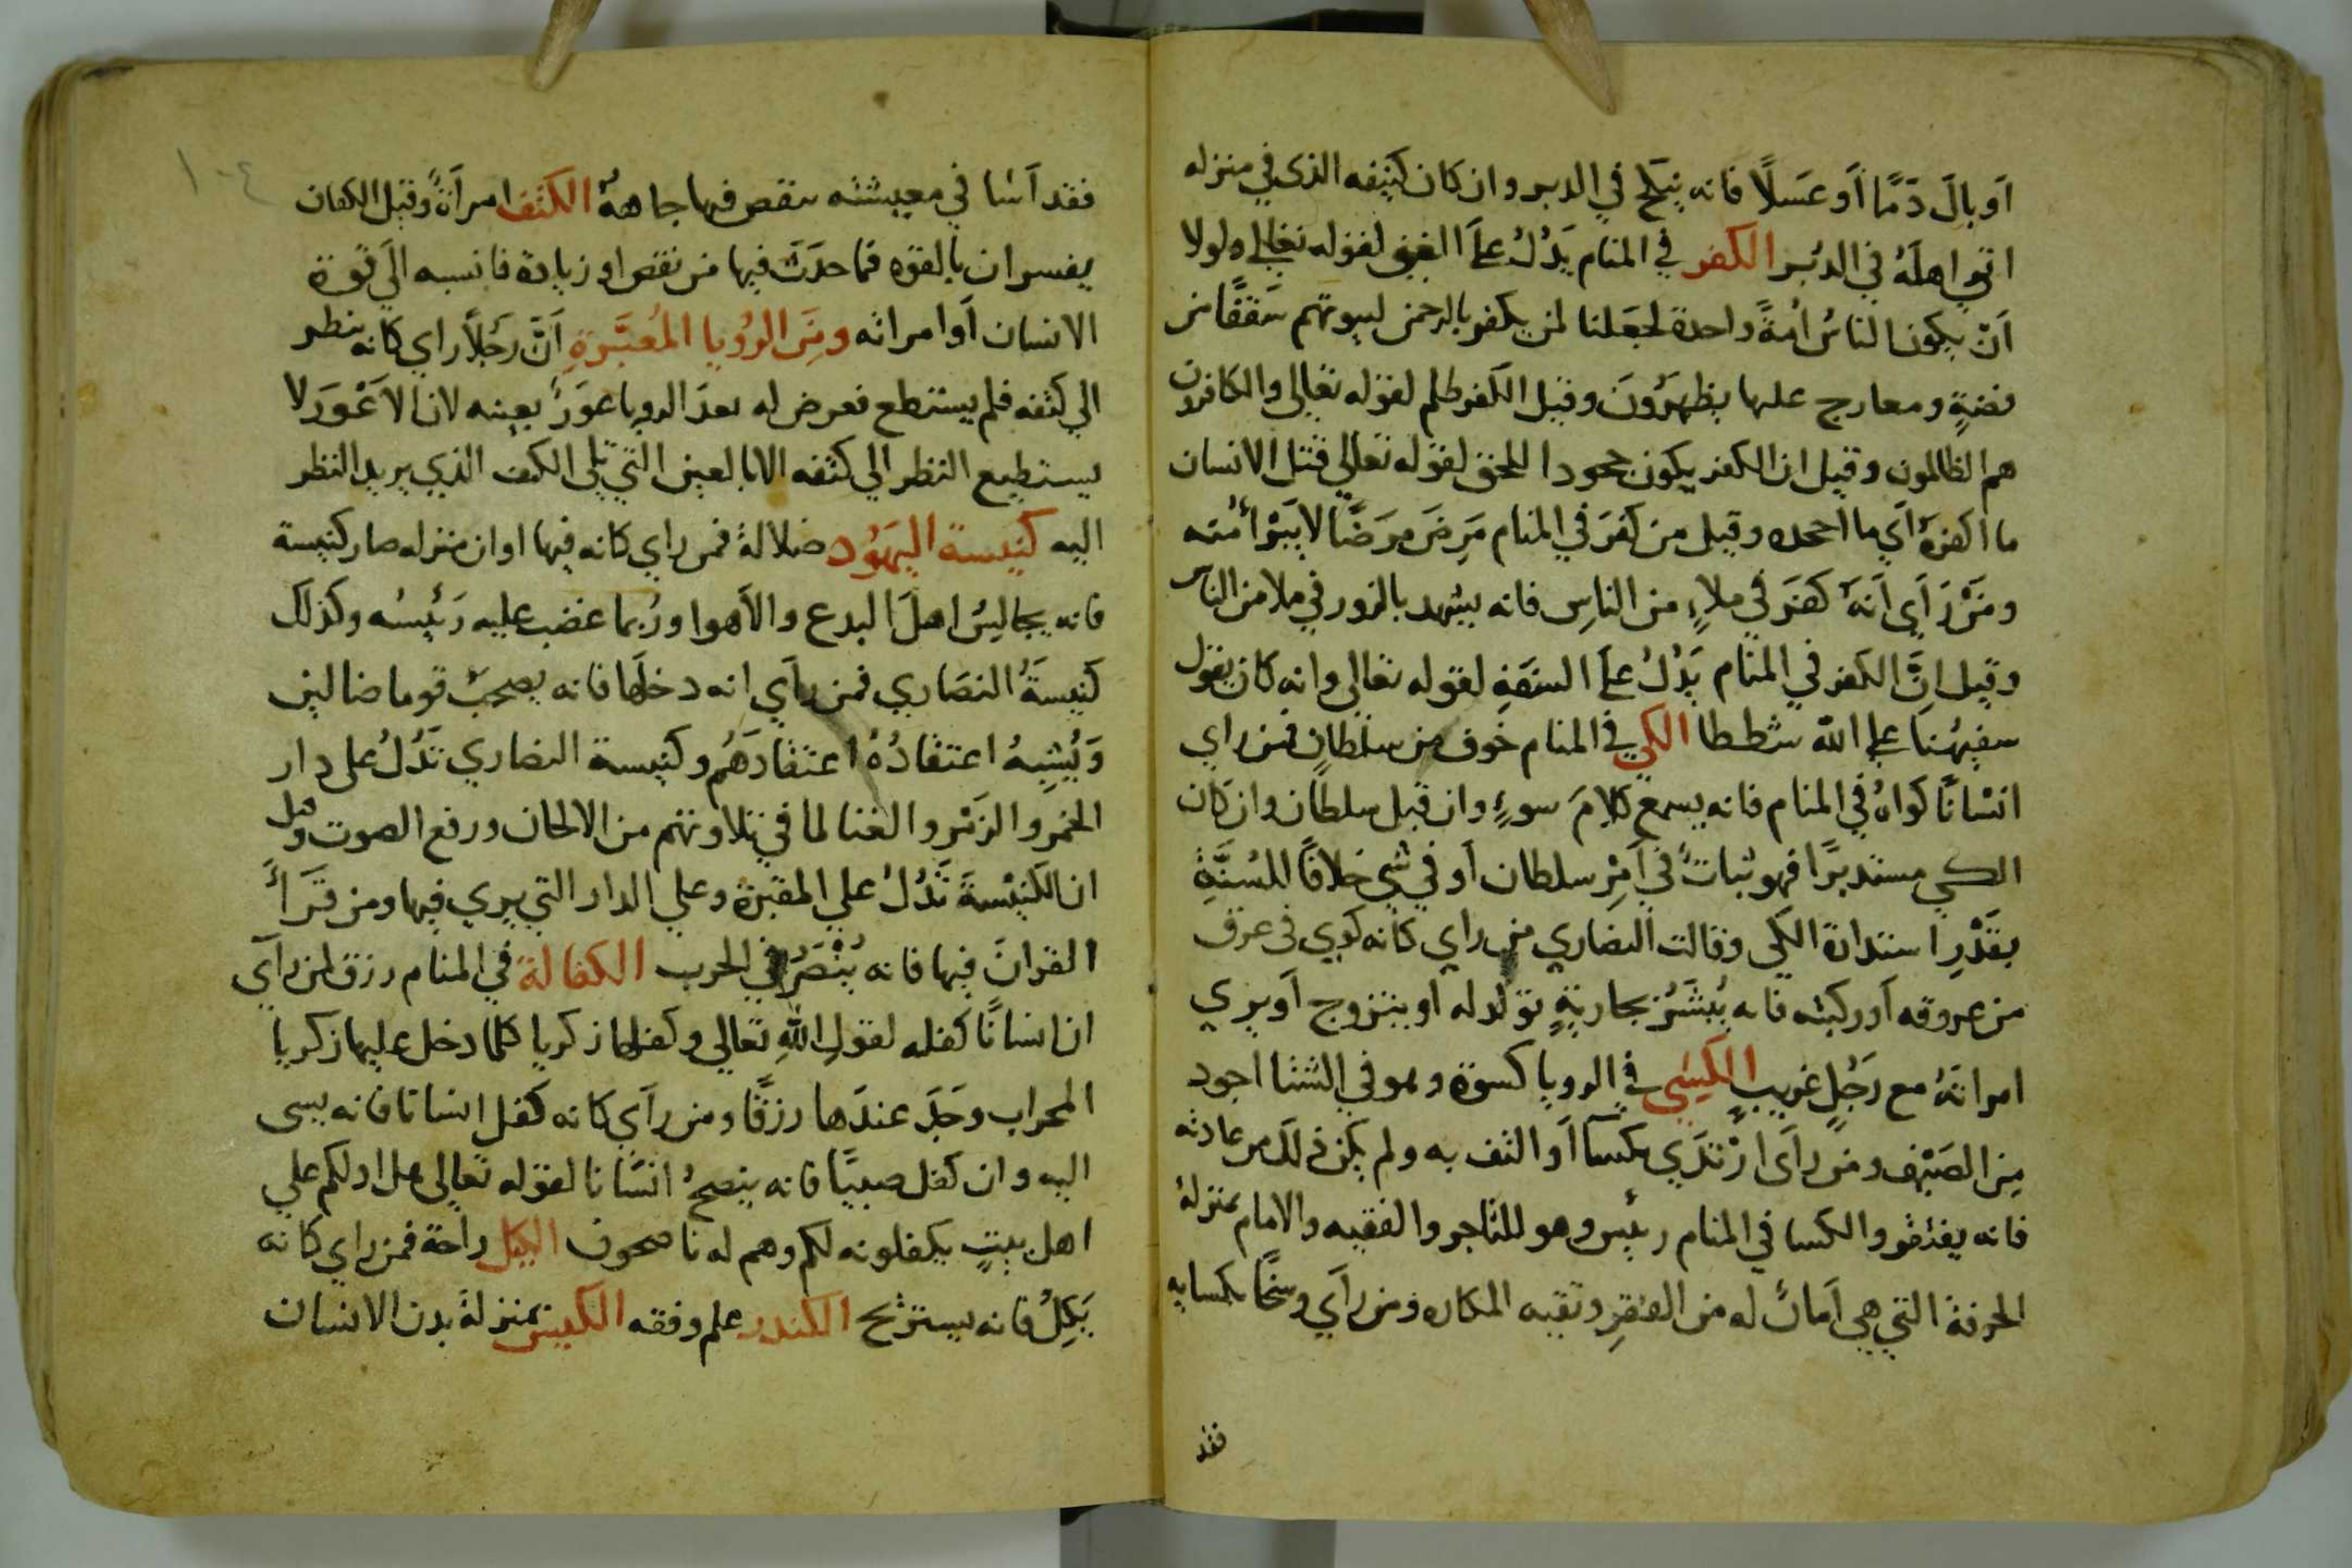 اَو بالَ دَمًا اَو عَسَلًا فانه ينكح في الدبر وان كان كنيفه الذي في منزله
اتي اهلَهُ في الدُبر الكفر في المنام يَدُلُ علَي الغني لقوله تعالي ولولا
اَنْ يكون الناسُ اُمةً واحدة لجَعَلنا لمن يكفر بالرحمن لبيوتهم سَقفًا من
فضةٍ ومعارج عليها يظهَرُونَ وقيل الكفر ظلم لقوله تعالي والكافرون
هم الظالمون وقيل ان الكفر يكون جحودا للحق لقوله تعالي قتل الانسان
ما اكفرهُ اَي ما اجحده وقيل من كَفَرَ في المنام مَرِضَ مَرَضًا لا يَبْرأ منه
ومَنْ رَاَي اَنهُ كَفَرَ في ملاءٍ من الناسِ فانه يشهد بالزور في ملا من الناس
وقيل اِنَّ الكفر في المنام يَدُلُ علَي السَفَهِ لقوله تعالي وانه كان يقول
سفيهُنا علي الله شططا الكي في المنام خوف من سلطانٍ فمن راي
انسْانًا كواهُ في المنام فانه يسمع كلامَ سوءٍ وان قبل سلطان وان كان
الكي مستديرًا فهو ثباتٌ في اَمْرِ سلطان اَو في شي خلافًا للسُنَّةِ
بقَدْرِ استدارة الكي وقالت النصاري من راي كانه كوي في عرق
من عروقه اَو ركبته فانه يُبشَّرُ بجاريَةٍ تولد له او يتزوج اَو يري
امراتَهُ مع رَجُلٍ غريبٍ الكِسَى في الرويا كسوة وهو في الشتا اجود
مِن الصَيْف ومن راَى ارْتَدَي بكسآ اَو التف به ولم يكن ذلكَ من عادته
فانه يفتقر والكسا في المنام رئيس وهو للتاجر والفقيه والامام بمنزلة
الحرفة التي هي اَمانٌ له من الفقرِ وتقيه المكاره ومن راَي وسَخًا بكسايه
فقد
١٠٤
فقد اَسا في معيشته ينقص فيها جاههُ الكتف امراَةٌ وقيل الكتفان
يفسران بالقوه فما حدَثَ فيها من نقص او زيادة فانسبه الَي قوة
الانسان اَو امراته ومِنَ الرُويا المُعَبَّرَةِ اَنَّ رَجُلًا راي كانه ينظر
الي كتفه فلم يستطع فعرض له بعدَ الرويا عوَرٌ بعينه لان الاَعْوَرَ لا
يستطيع النظر الي كتفه الا بالعين التي تلي الكتف الذي يريد النظر
اليه كنيسة اليهَوُد ضلالة فمن راي كانه فيها او ان منزله صار كنيسة
فانه يجالِسُ اهلَ البدع والاَهوا ورُبما غضب عليه رَئيسُه وكذلك
كَنِيسَةُ النصَاري فمن راَي انه دخلَها فانه يصحبُ قوما ضالين
وَيُشْبِهُ اعتقادُهُ اعتقادَهُم وكنيسة النصاري تَدُلُ على دار
الخمر والزَمْر والغنا لما في تلاوتهم من الالحان ورفع الصوت وقيل
ان الكَنِيسةَ تَدُلُ علي المقبرة وعلي الدار التي يري فيها ومن قَرَأَ
القرانَ فيها فانه يُنْصَرُ في الحرب الكفالة في المنام رزق لمن راَي
ان انسانًا كفله لقولِ اللهِ تعالي وكفلها زكريا كلما دخل عليها زكريا
المحراب وَجَدَ عندَها رزقًا ومن راَي كانه كفل انسانا فانه يسى
اليه وان كفل صبيًا فانه ينصحُ انسَانا لقوله تعالي هل ادلكم علي
اهل بيتٍ يكفلونه لكم وهم له ناصحون الكيل راحة فمن راي كانه
يَكِلُ فانه يستريح الكندر علم وفقه الكيس بمنزلة بدن الانسان